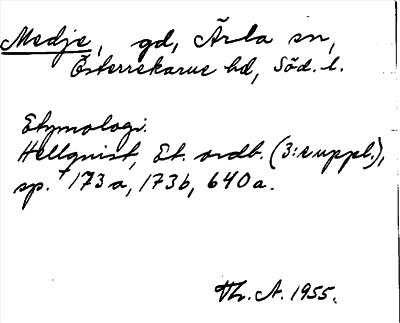 Medje, gd, Ärla sn,
Österrekarne hd, Söd. l.
Etymologi.
Hellquist, Et. ordb. (3:e uppl.),
sp. 173a, 173b, 640a.
Th. A. 1955.